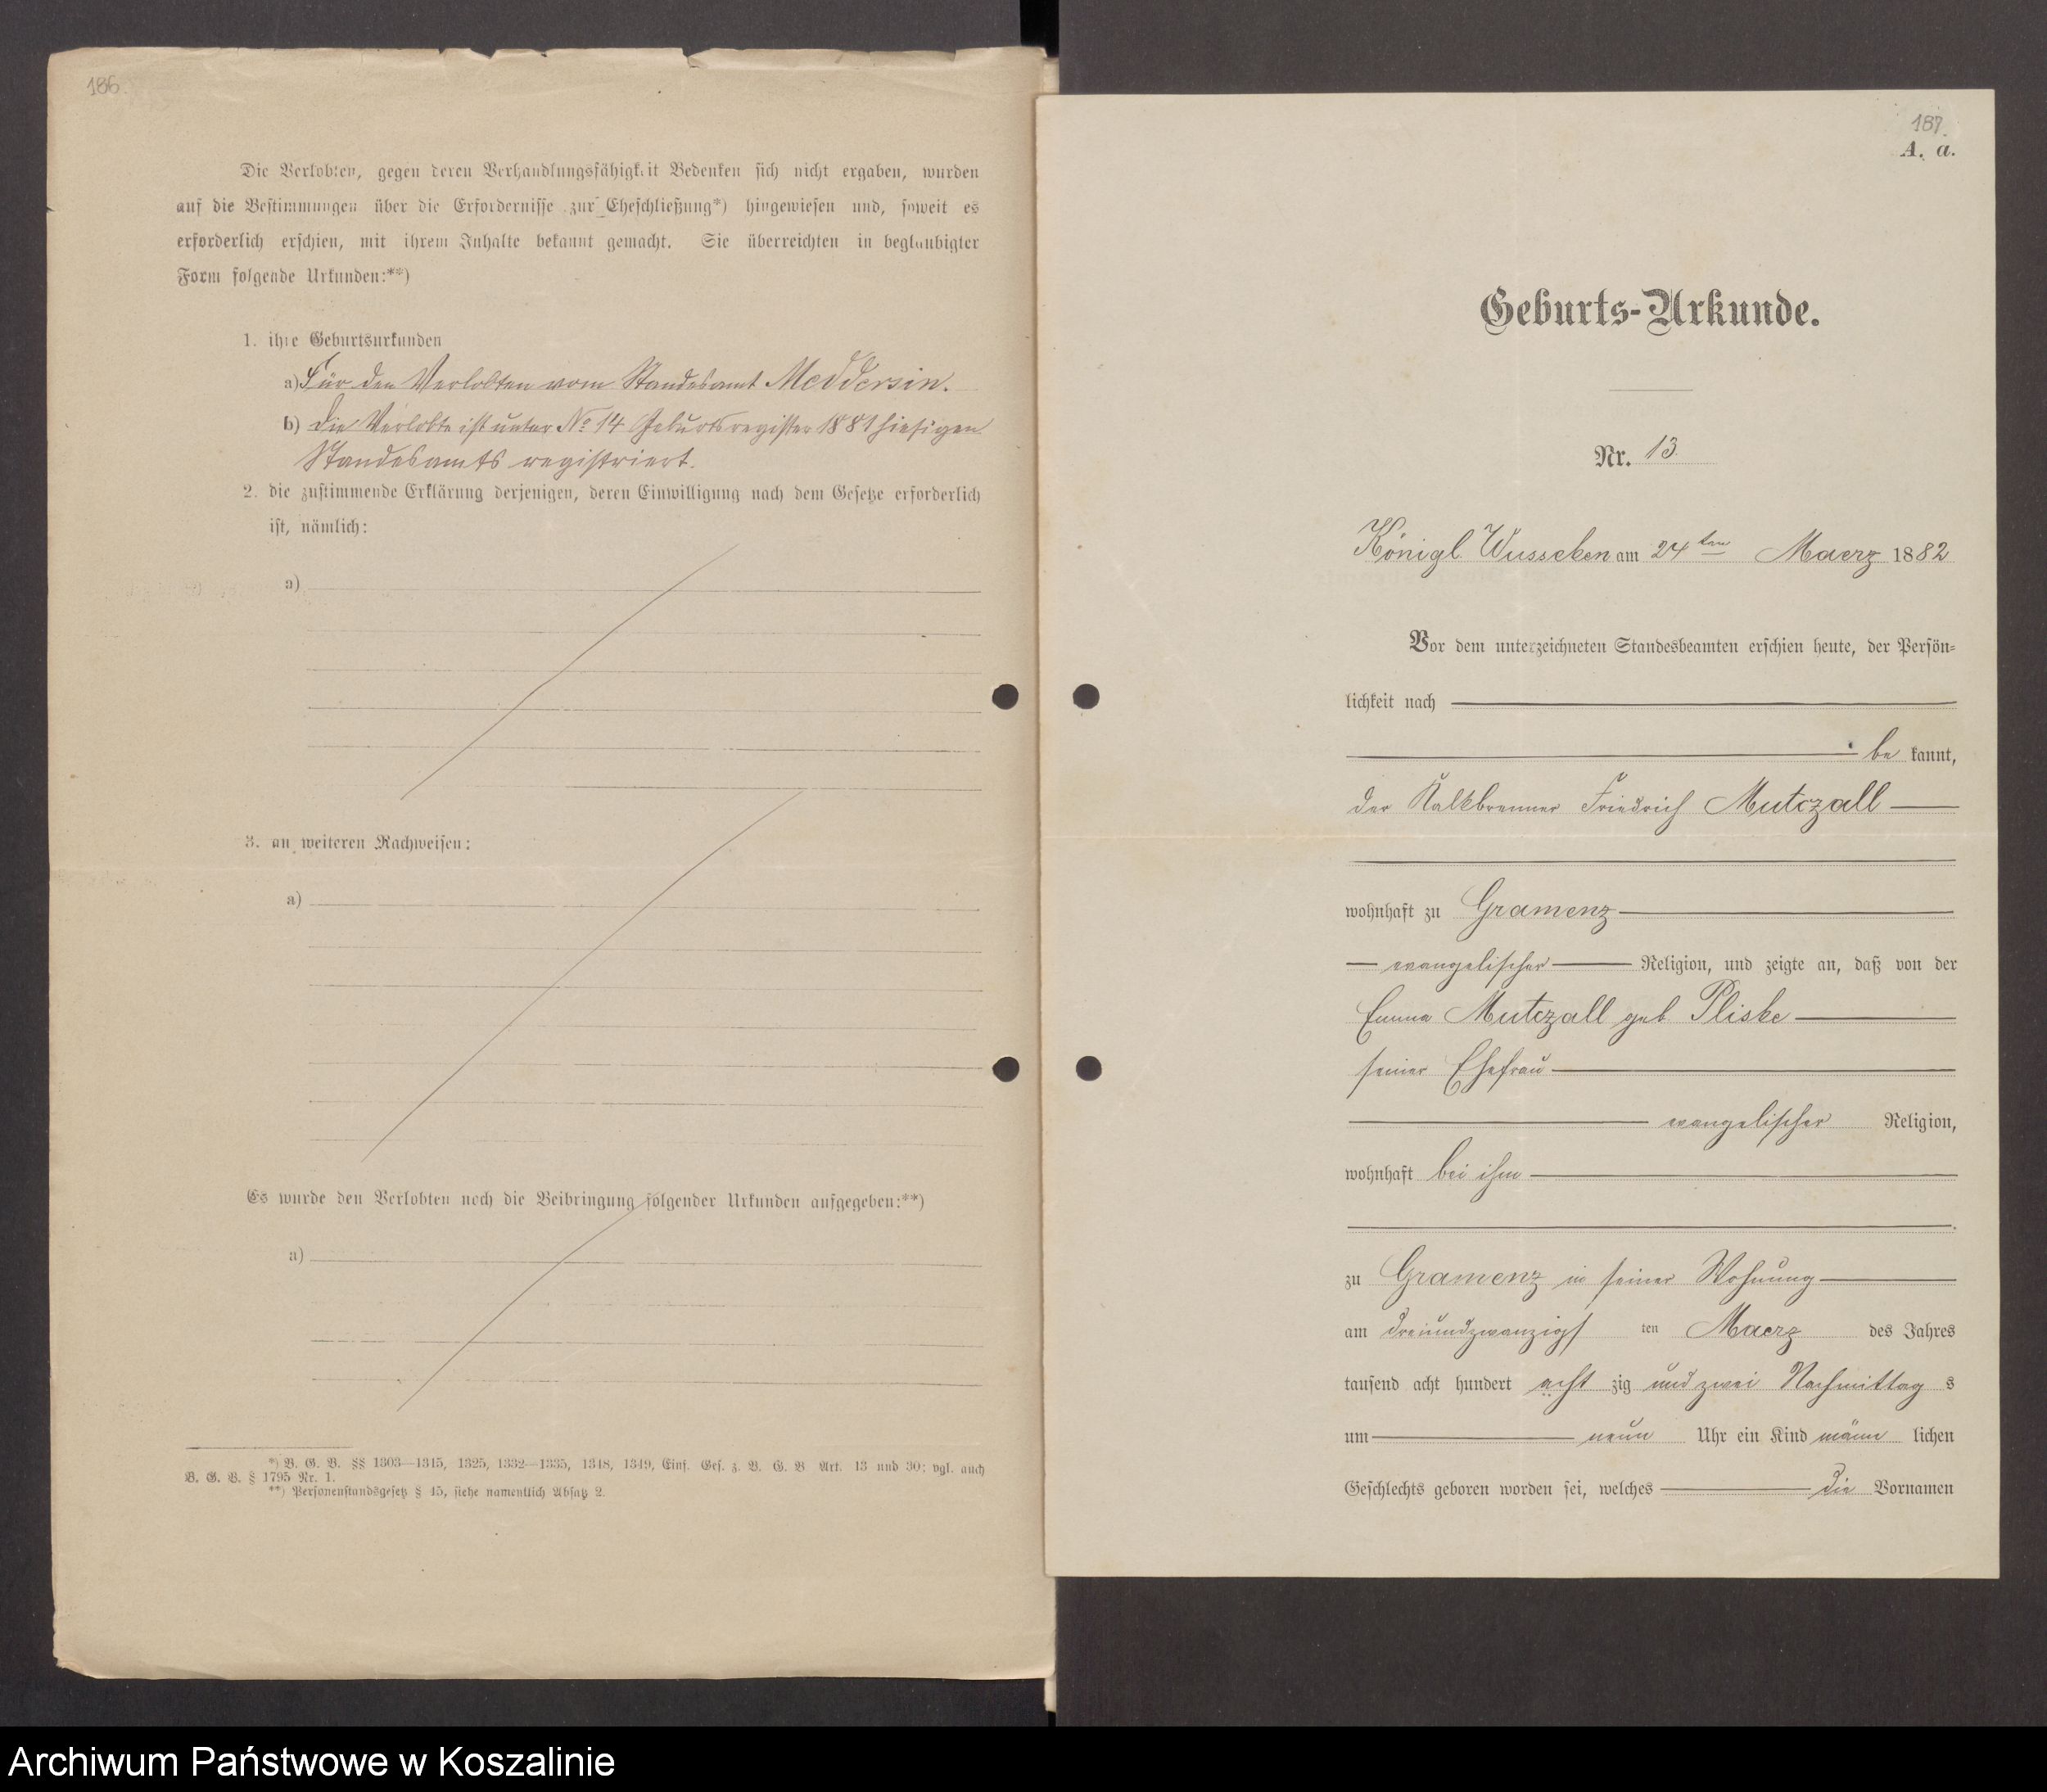 186.
Die Verlobten, gegen deren Verhandlungsfähigkeit Bedenken sich nicht ergaben, wurden
auf die Bestimmungen über die Erfordernisse zur Eheschließung*) hingewiesen und, soweit es
erforderlich erschien, mit ihrem Inhalte bekannt gemacht. Sie überreichten in beglaubigter
Form folgende Urkunden:**)
1. ihre Geburtsurkunden
a) Für den Verlobten vom Standesamt Meddersin.
b) die Verlobte ist unter No 14 Geburtsregister 1881 hiesigen
Standesamts registriert.
2. die zustimmende Erklärung derjenigen, deren Einwilligung nach dem Gesetze erforderlich
ist, nämlich:
a)
3. an weiteren Nachweisen:
a)
Es wurde den Verlobten noch die Beibringung folgender Urkunden aufgegeben:**)
a)
*) B. G. B. §§ 1303—1315, 1325, 1332—1335, 1348, 1349, Einf. Ges. z. B. G. B. Art. 13 und 30; vgl. auch
B. G. B. § 1795 Nr. 1.
**) Personenstandsgesetz § 45, siehe namentlich Absatz 2.
187.
A. a.
Geburts-Urkunde.
Nr. 13
Königl. Wusseken am 24ten Maerz 1882
Vor dem unterzeichneten Standesbeamten erschien heute, der Persön-
lichkeit nach
be kannt,
der Kalkbrenner Friedrich Mutczall
wohnhaft zu Gramenz
evangelischer Religion, und zeigte an, daß von der
Emma Mutczall geb. Pliske
seiner Ehefrau
evangelischer Religion,
wohnhaft bei ihm
zu Gramenz in seiner Wohnung
am dreiundzwanzigs ten Maerz des Jahres
tausend acht hundert acht zig und zwei Nachmittag s
um neun Uhr ein Kind männ lichen
Geschlechts geboren worden sei, welches die Vornamen
Archiwum Państwowe w Koszalinie